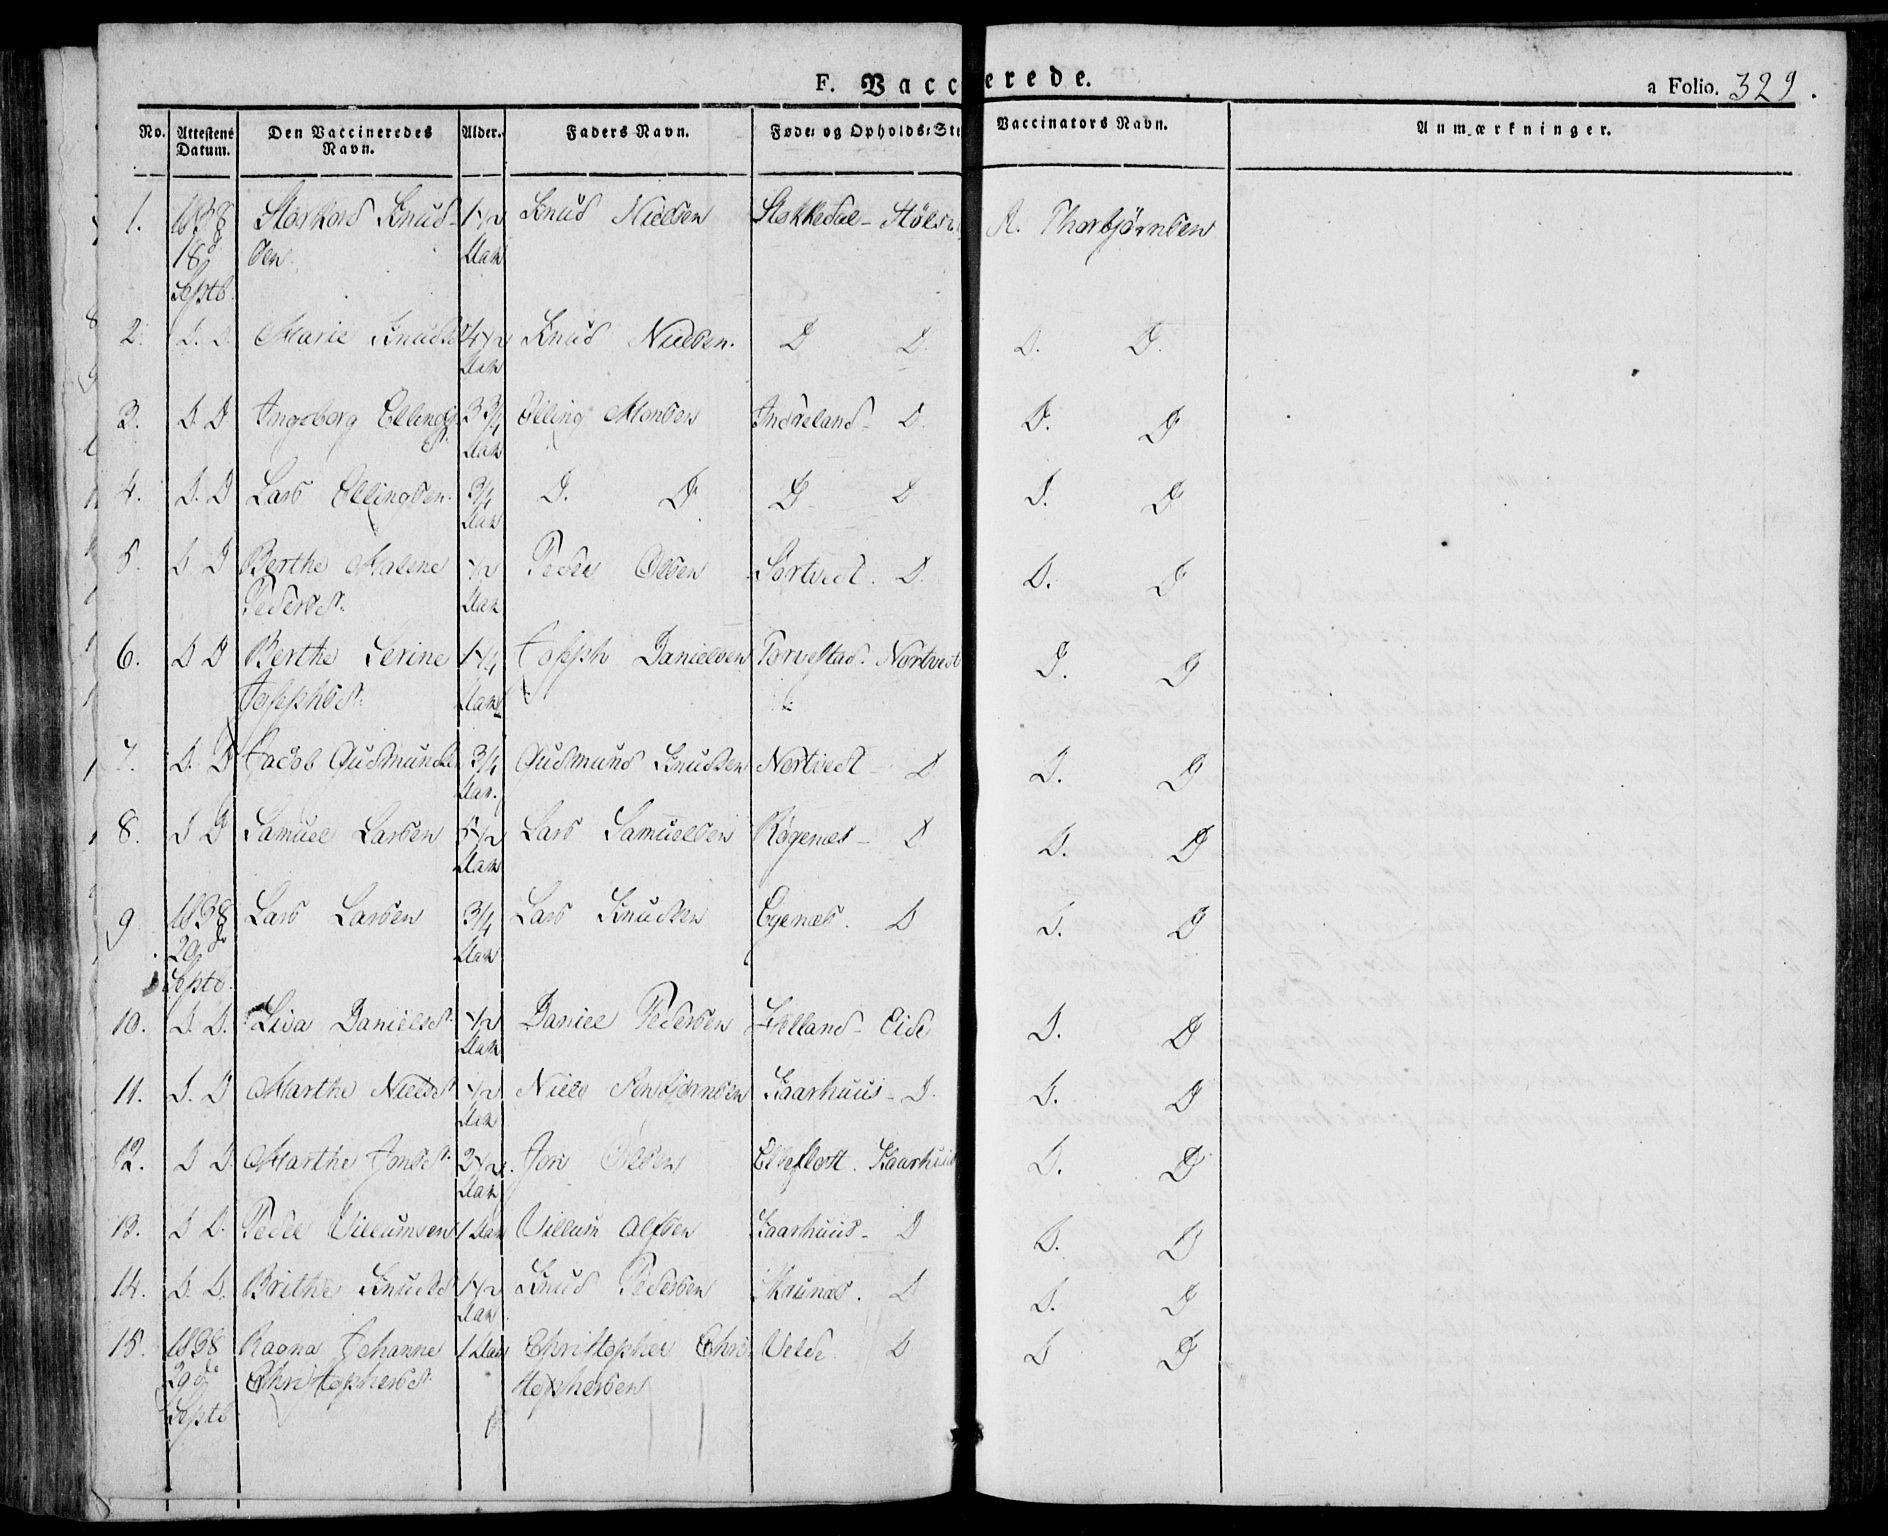 F. Vaccinerede. a Folio. 329.
No. Attestens Datum. Den Vaccineredes Navn. Alder. Faders Navn. Føde- og Opholds-Ste Vaccinators Navn. Anmærkninger.
1. 1838 18de Septb. Knud- sen 1 1/2 Aar Knud Nielsen Stokkedal - A. Thorbjørnsen
2. D. D. Marie Knuds 4 1/2 Aar Knud Nielsen. D D. D. D.
3. D. D Ingeborg Ellingsd. 3 3/4 Aar Elling Monsen Indreland - D. D. D
4. D. D Lars Ellingsen. 3/4 Aar D. D D D D. D
5. D. D Berthe Malene Pedersdt. 1/2 Aar Peder Olsen Sortvedt. D. D. D
6. D D Berthe Serine Josephsdt. 1 1/4 Aar Joseph Danielsen Torvestad. Nortvedt D. D
7. D. D Jacob Gudmunds 3/4 Aar. Gudmund Knudsen Nortvedt - D D. D
8. D D Samuel Larsen 5 1/2 Aar Lars Samuelsen Røgenæs - D D. D
9 1838 29de Septb. Lars Larsen 3/4 Aar Lars Knudsen Egenæs. D D. D
10. D. D. Lisa Danielsdt. 1/2 Aar Daniel Pedersen - Eide D. D
11. D. D Marthe Nielsdt 1/2 Aar Niels Kaarhuus - D. D. D
12. D D. Marthe Jonsdt. 2 1/2 Aar Jon Olsen Kaarhuus D. D
13. D D. Peder Villumsen 1 Aar Villum Olsen Kaarhuus - D D. D
14. D. D. Brithe Knudsd 1 1/2 Aar Knud Pedersen D D. D
15. 1838 29de Septb Ragna Johanne Christophersdt. 1 Aar Christopher Chri- stophersen Velde. D D D